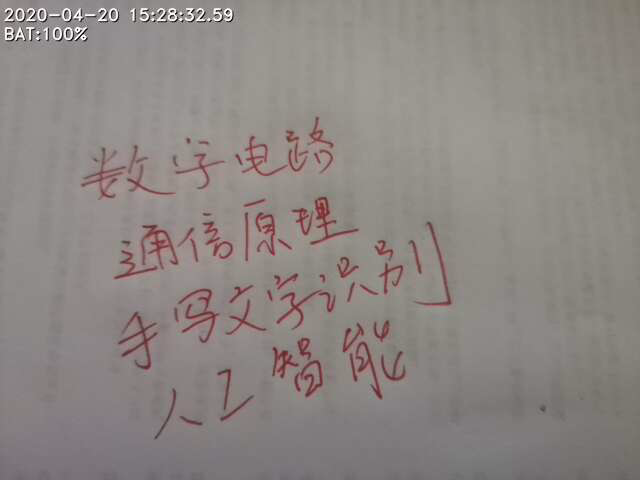 2020-04-20 15:28:32.59
BAT:100%
数字电路
通信原理
手写文字识别
人工智能